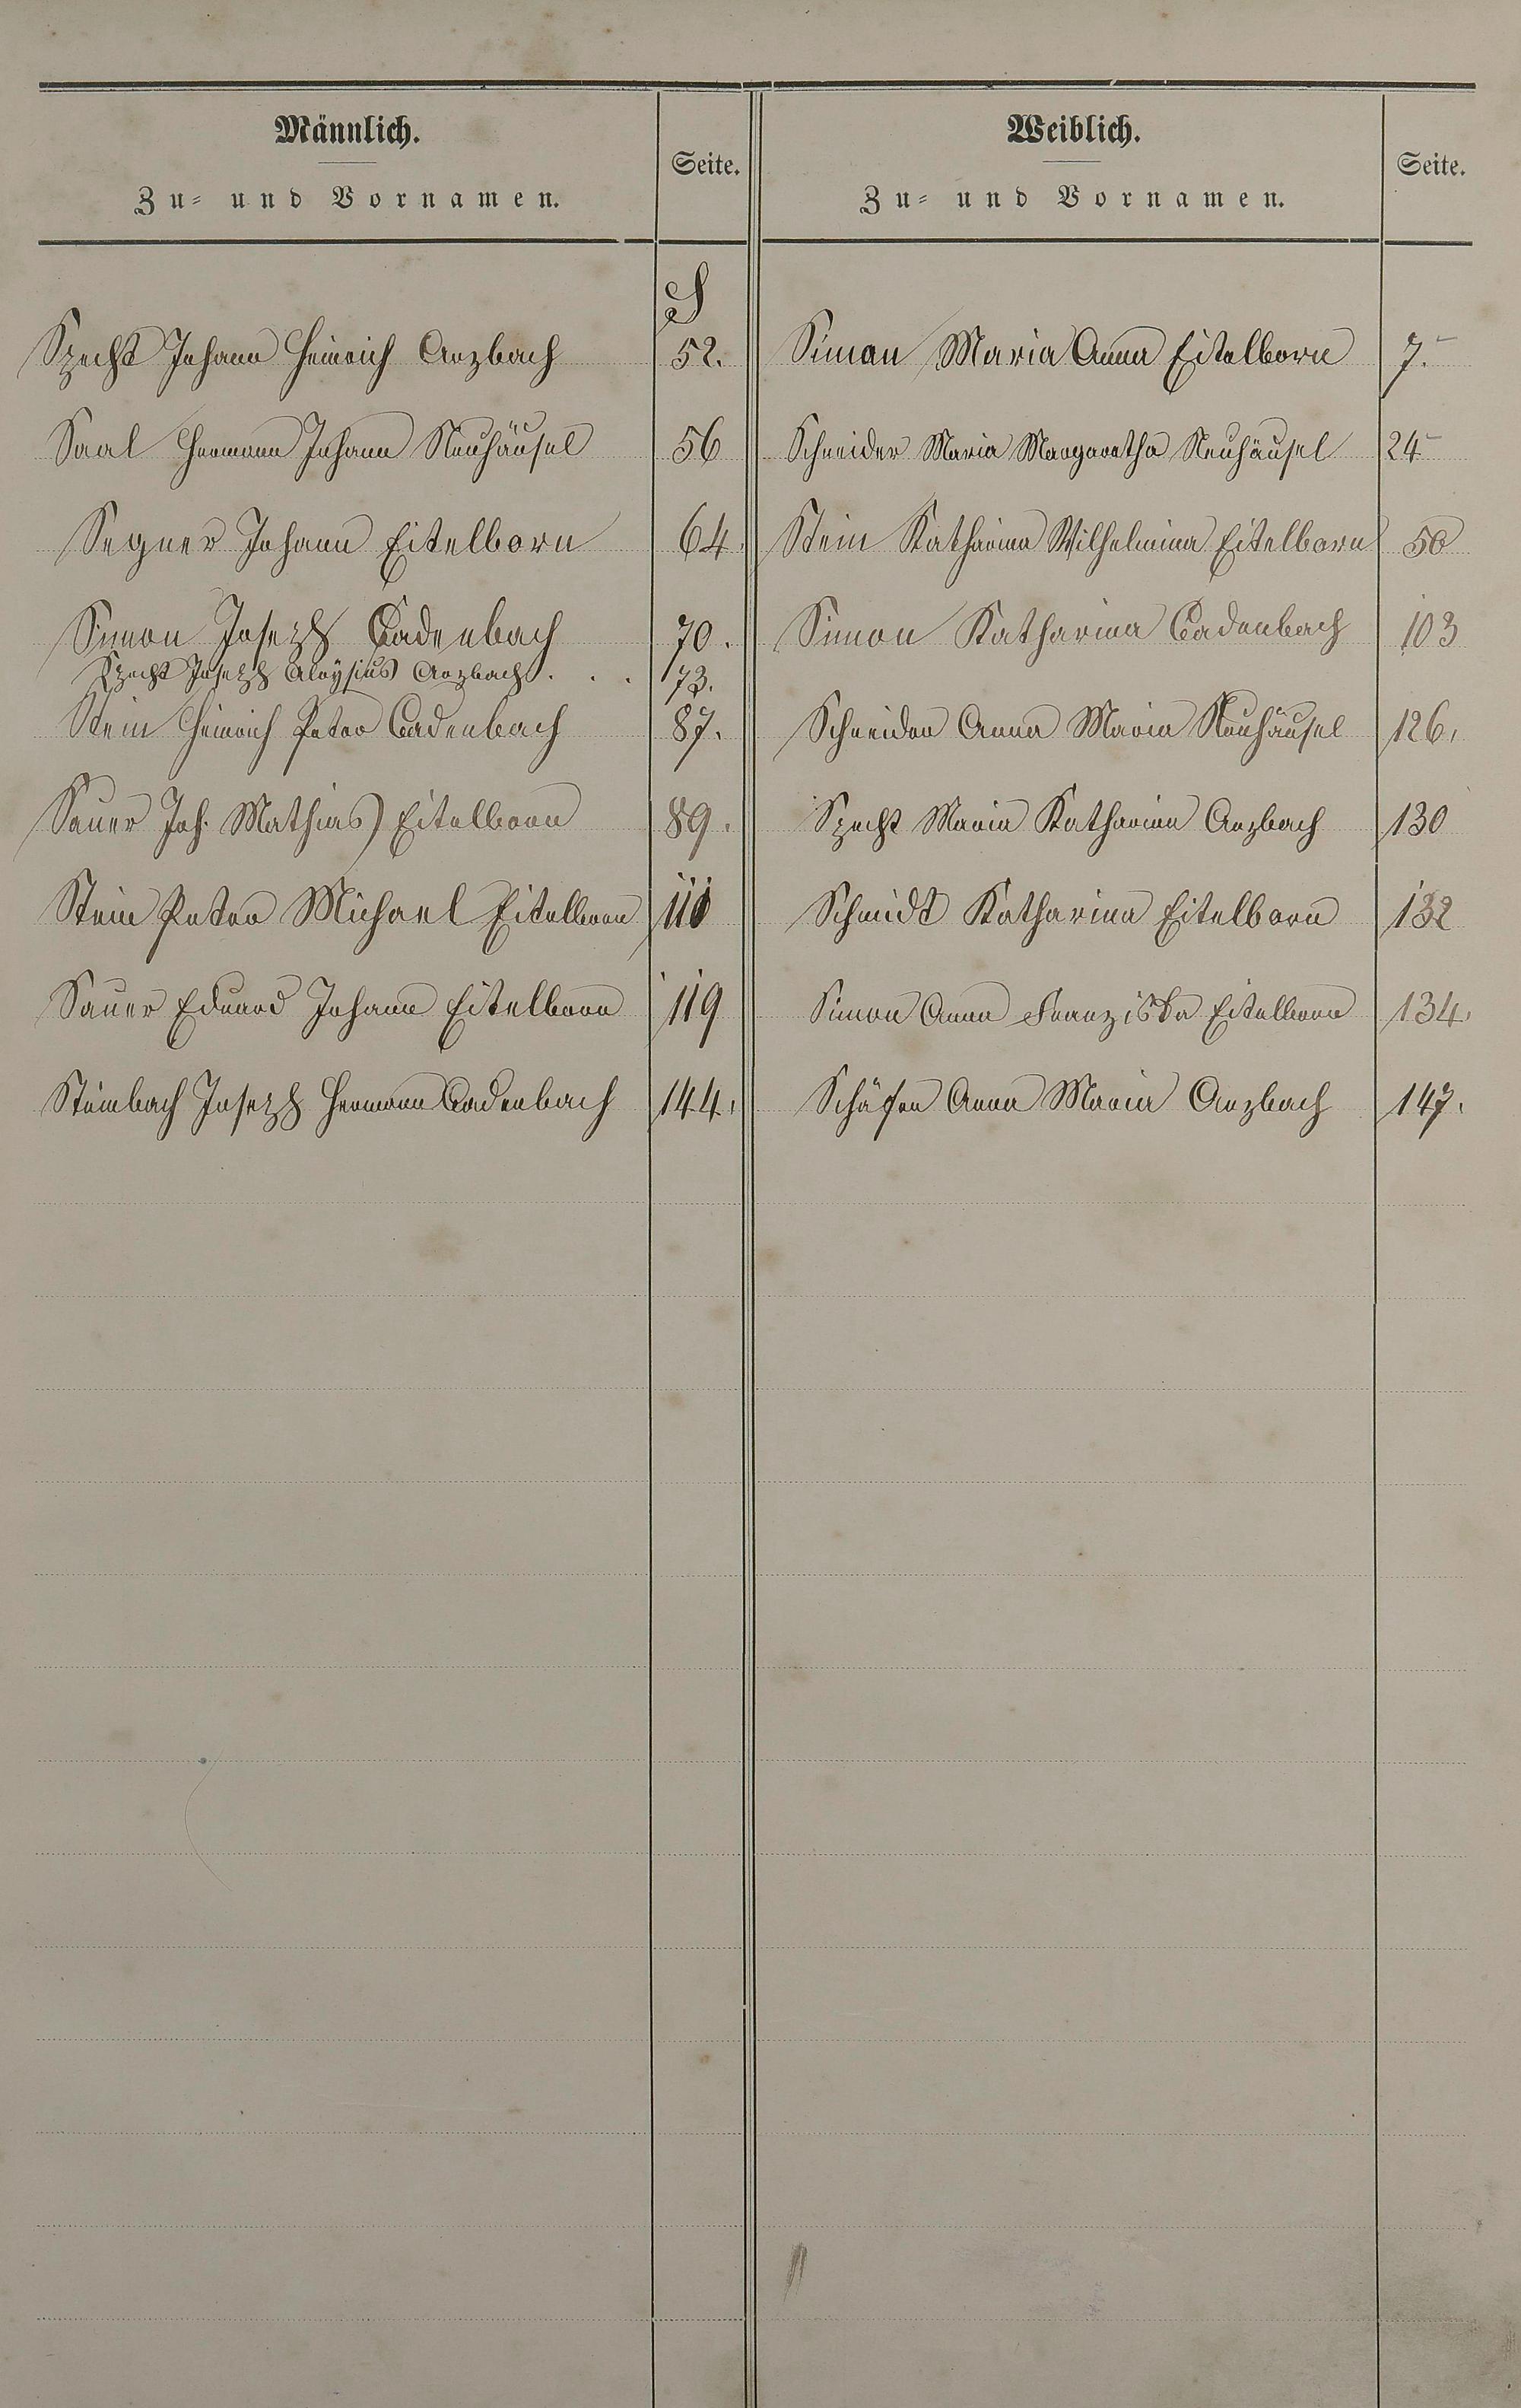 Männlich.
Zu- und Vornamen.
Seite.
Weiblich.
Zu- und Vornamen.
Seite.
S
Specht Johann Heinrich Arzbach 52.
Simon Maria Anna Eitelborn 7.
Saal Hermann Johann Neuhäusel 56
Schneider Maria Margaretha Neuhäusel 24
Segner Johann Eitelborn 64.
Stein Katharina Wilhelmina Eitelborn 50
Simon Joseph Cadenbach 70.
Simon Katharina Cadenbach 103
Specht Joseph Aloysius Arzbach . . . 73.
Stein Heinrich Peter Cadenbach 87.
Schneider Anna Maria Neuhäusel 126.
Sauer Joh. Mathias Eitelborn 89.
Specht Maria Katharina Arzbach 130
Stein Peter Michael Eitelborn 110
Schmidt Katharina Eitelborn 132
Sauer Eduard Johann Eitelborn 119
Simon Anna Franziska Eitelborn 134.
Steinbach Joseph Hermann Cadenbach 144.
Schäfer Anna Maria Arzbach 147.